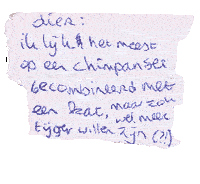 dier:
ik lijk 't het meest
op een chimpansee
gecombineerd met
een kat, maar zou
wel meer
tijger willen zijn (?!)